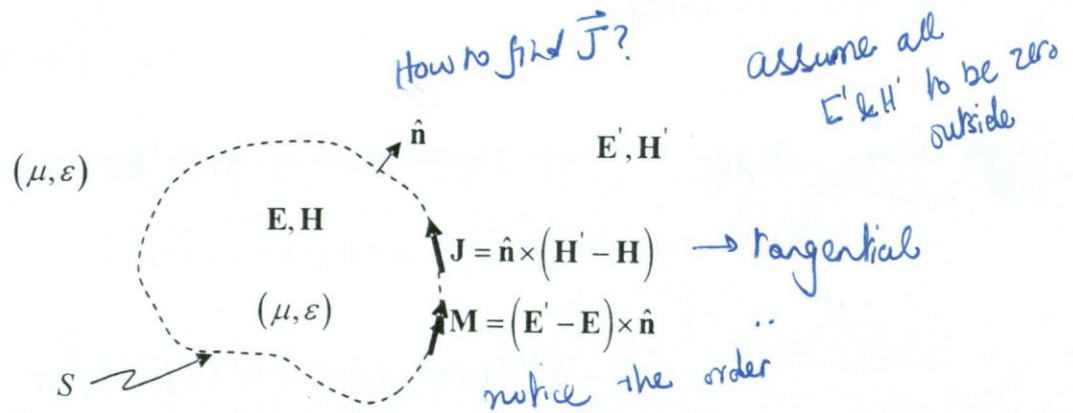 How to find J⃗?
assume all
E' & H' to be zero
outside
(μ, ε)
n̂
E', H'
E, H
J = n̂ × (H' − H) → tangential
(μ, ε)
M = (E' − E) × n̂ ..
S
notice the order